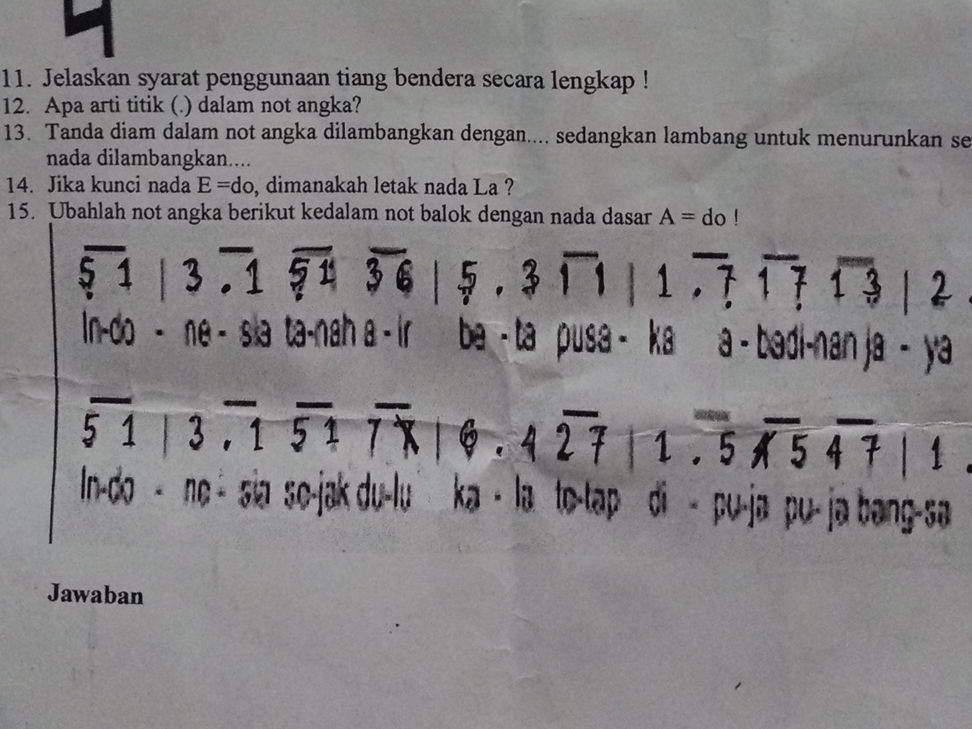 4
11. Jelaskan syarat penggunaan tiang bendera secara lengkap !
12. Apa arti titik (.) dalam not angka?
13. Tanda diam dalam not angka dilambangkan dengan.... sedangkan lambang untuk menurunkan se
nada dilambangkan....
14. Jika kunci nada E =do, dimanakah letak nada La ?
15. Ubahlah not angka berikut kedalam not balok dengan nada dasar A = do !
5 1 | 3 . 1 5 1 3 6 | 5 . 3 1 1 | 1 . 7 1 7 1 3 | 2 .
In-do - ne - sia ta-nah a - ir be - ta pusa - ka a - badi-nan ja - ya
5 1 | 3 . 1 5 1 7 | 6 . 4 2 7 | 1 . 5 5 4 7 | 1 .
In-do - ne - sia se-jak du-lu ka - la te-tap di - pu-ja pu- ja bang-sa
Jawaban